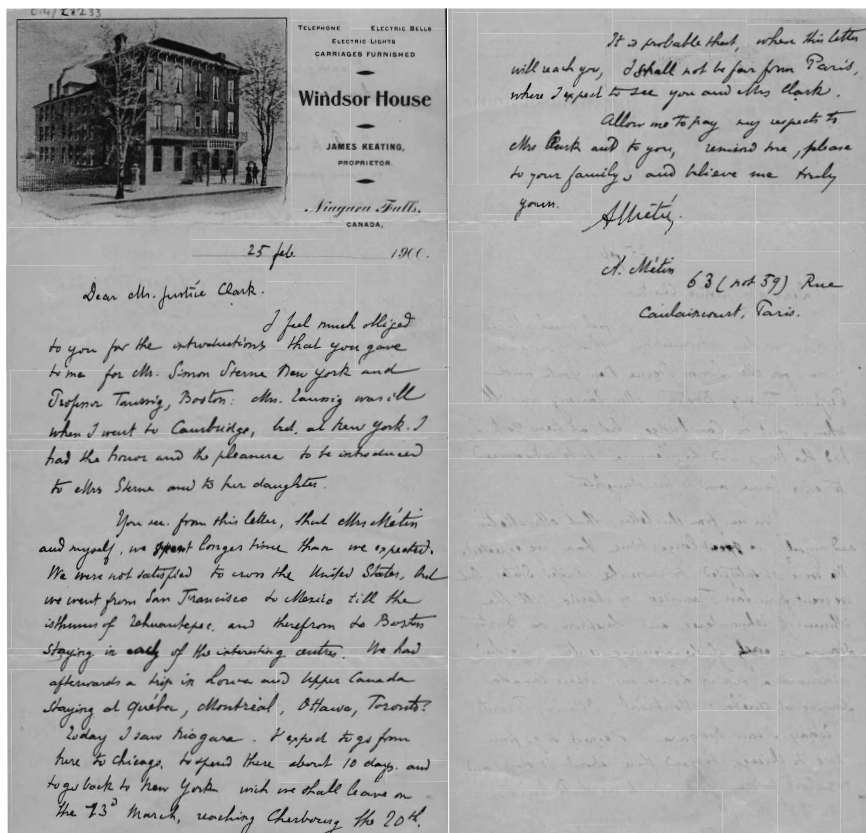 C.4/L2233
TELEPHONE ELECTRIC BELLS
ELECTRIC LIGHTS
CARRIAGES FURNISHED
Windsor House
JAMES KEATING,
PROPRIETOR.
Niagara Falls,
CANADA,
25 feb. 1900.
Dear Mr. Justice Clark.
I feel much obliged
to you for the introductions that you gave
to me for Mr. Simon Sterne New York and
Professor Taussig, Boston: Mrs. Taussig was ill
when I went to Cambridge, but at New York. I
had the honor and the pleasure to be introduced
to Mrs Sterne and to her daughter.
You see from this letter, that Mrs Métin
and myself, we spent longer time than we expected.
We were not satisfied to cross the United States, but
we went from San Francisco to Mexico till the
isthmus of Tehuantepec, and therefrom to Boston
staying in each of the interesting centres. We had
afterwards a trip in Lower and Upper Canada
staying at Québec, Montréal, Ottawa, Toronto.
Today I saw Niagara. I expect to go from
here to Chicago, to spend there about 10 days. and
to go back to New York wich we shall leave on
the 13d March, reaching Cherbourg the 20th.
It is probable that, when this letter
will reach you, I shall not be far from Paris,
where I expect to see you and Mrs Clark.
Allow me to pay my respects to
Mrs Clark and to you, remind me, please
to your family, and believe me truly
yours.
A Métin
A. Métin
63 (not 59) Rue
Caulaincourt, Paris.